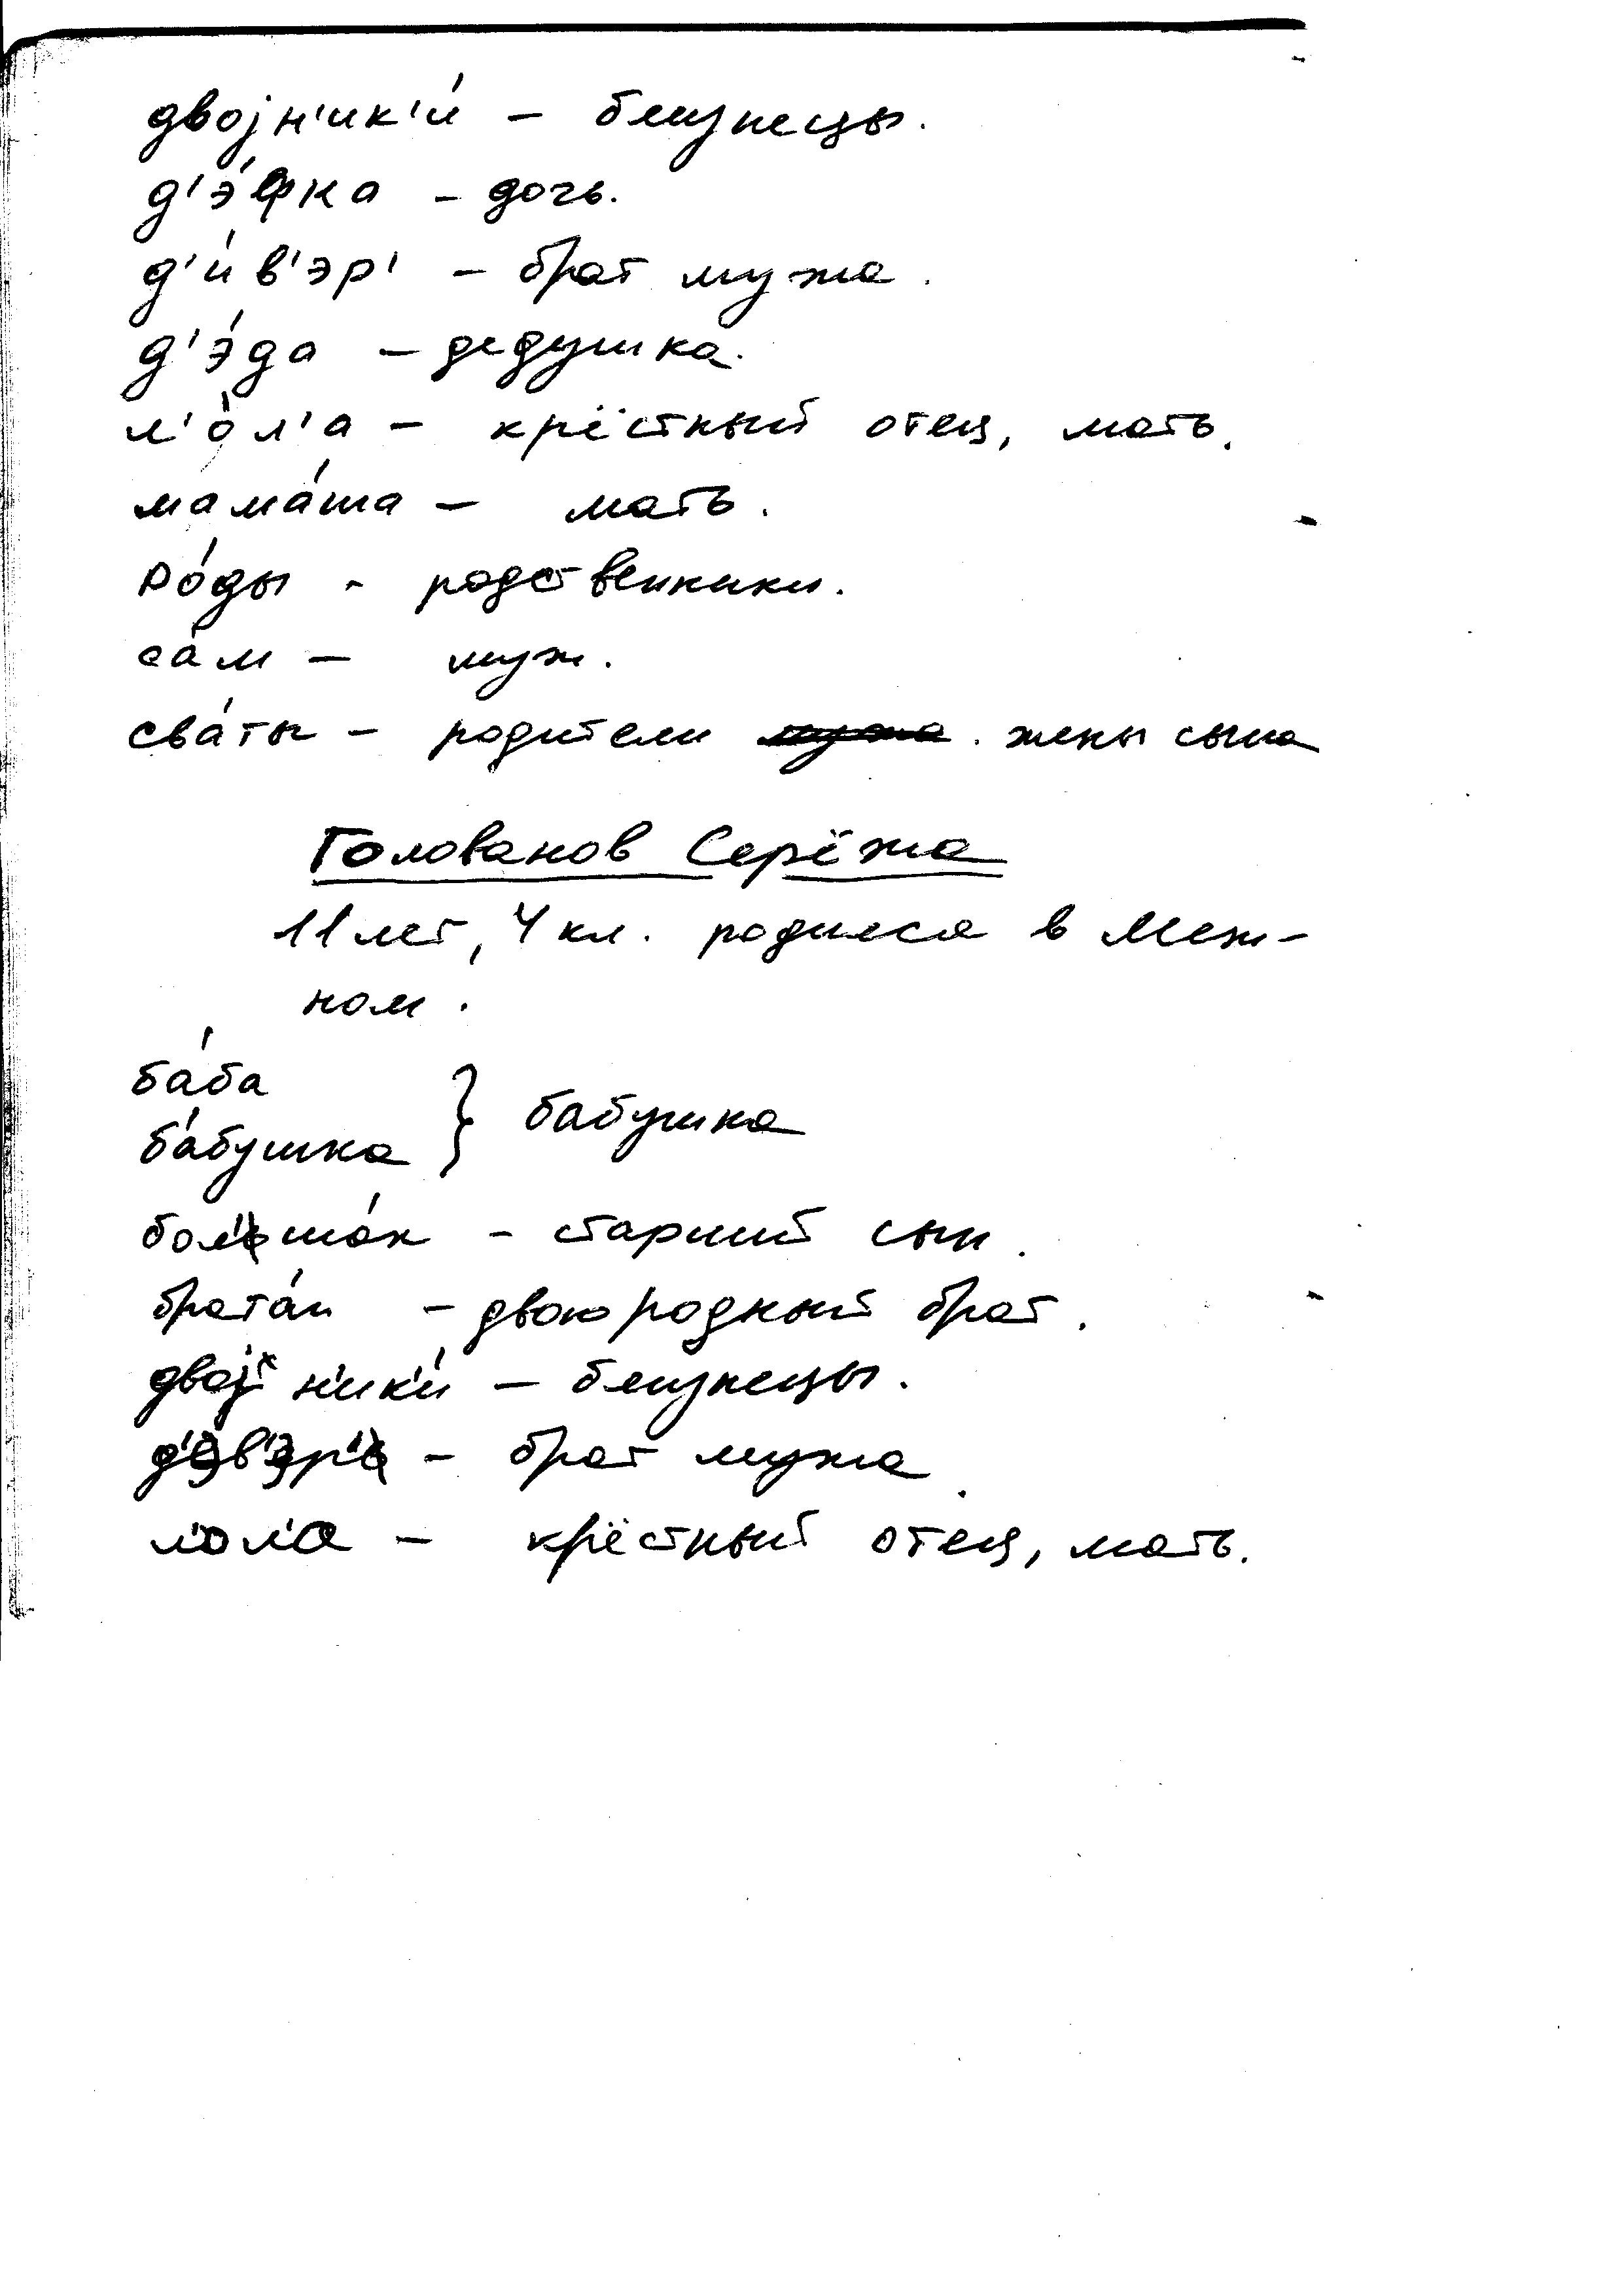 двојн'ик'и́ – близнецы.
д'э́фка – дочь.
д'и́в'эр' – брат мужа.
д'э́да – дедушка.
л'о́л'а – крёстный отец, мать.
мама́ша – мать.
ро́ды – родственники.
са́м – муж.
сва́ты – родители мужа. жены сына
Голованов Серёжа
11 лет, 4 кл. родился в Меж-
ном.
ба́ба
ба́бушка } бабушка
больша́к – старший сын.
брата́н – двоюродный брат.
двој н'ик'и́ – близнецы.
д'э́в'эр' – брат мужа.
л'о́л'а – крёстный отец, мать.